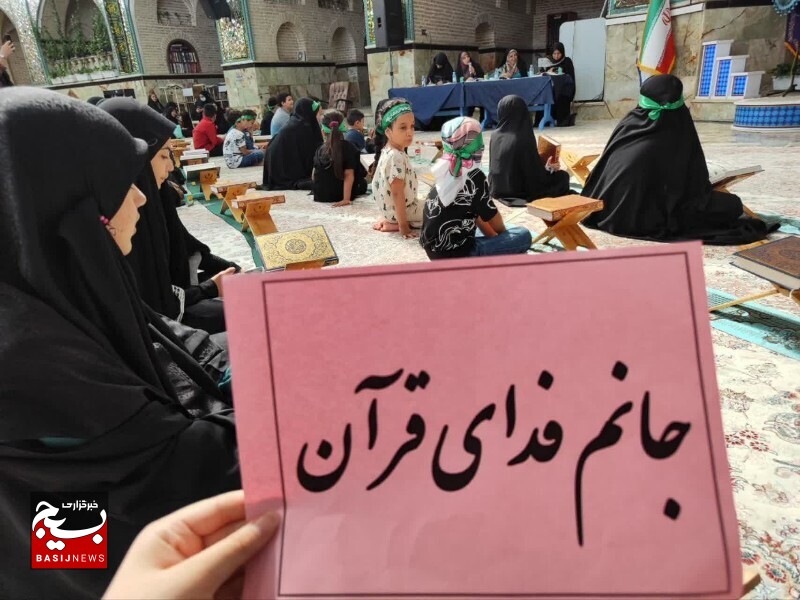 جانم فدای قرآن
خبرگزاری
بسیج
BASIJNEWS